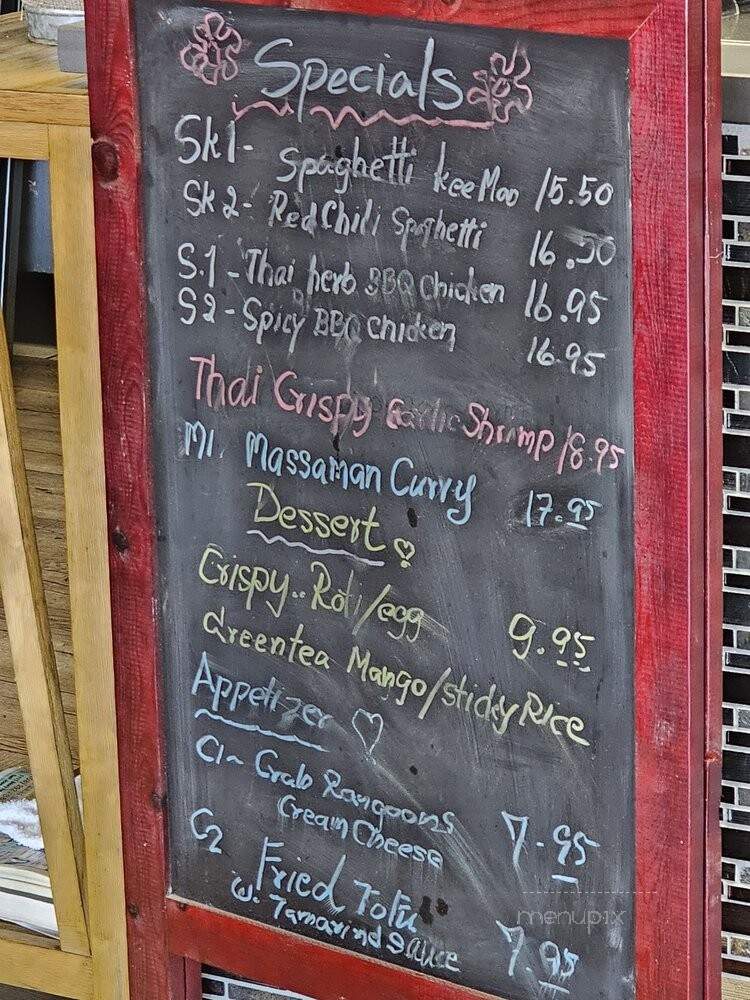 Specials
Sk1- Spaghetti kee Mao 15.50
Sk2- Red Chili Spaghetti 16.50
S.1 - Thai herb BBQ chicken 16.95
S2 - Spicy BBQ chicken 16.95
Thai Crispy Garlic Shrimp 18.95
M1. Massaman Curry 17.95
Dessert
Crispy.. Roti/egg 9.95
Greentea Mango/sticky Rice
Appetizer
C1~ Crab Rangoons 7.95
Cream Cheese
C2 Fried Tofu 7.95
w. Tamarind Sauce
menupix